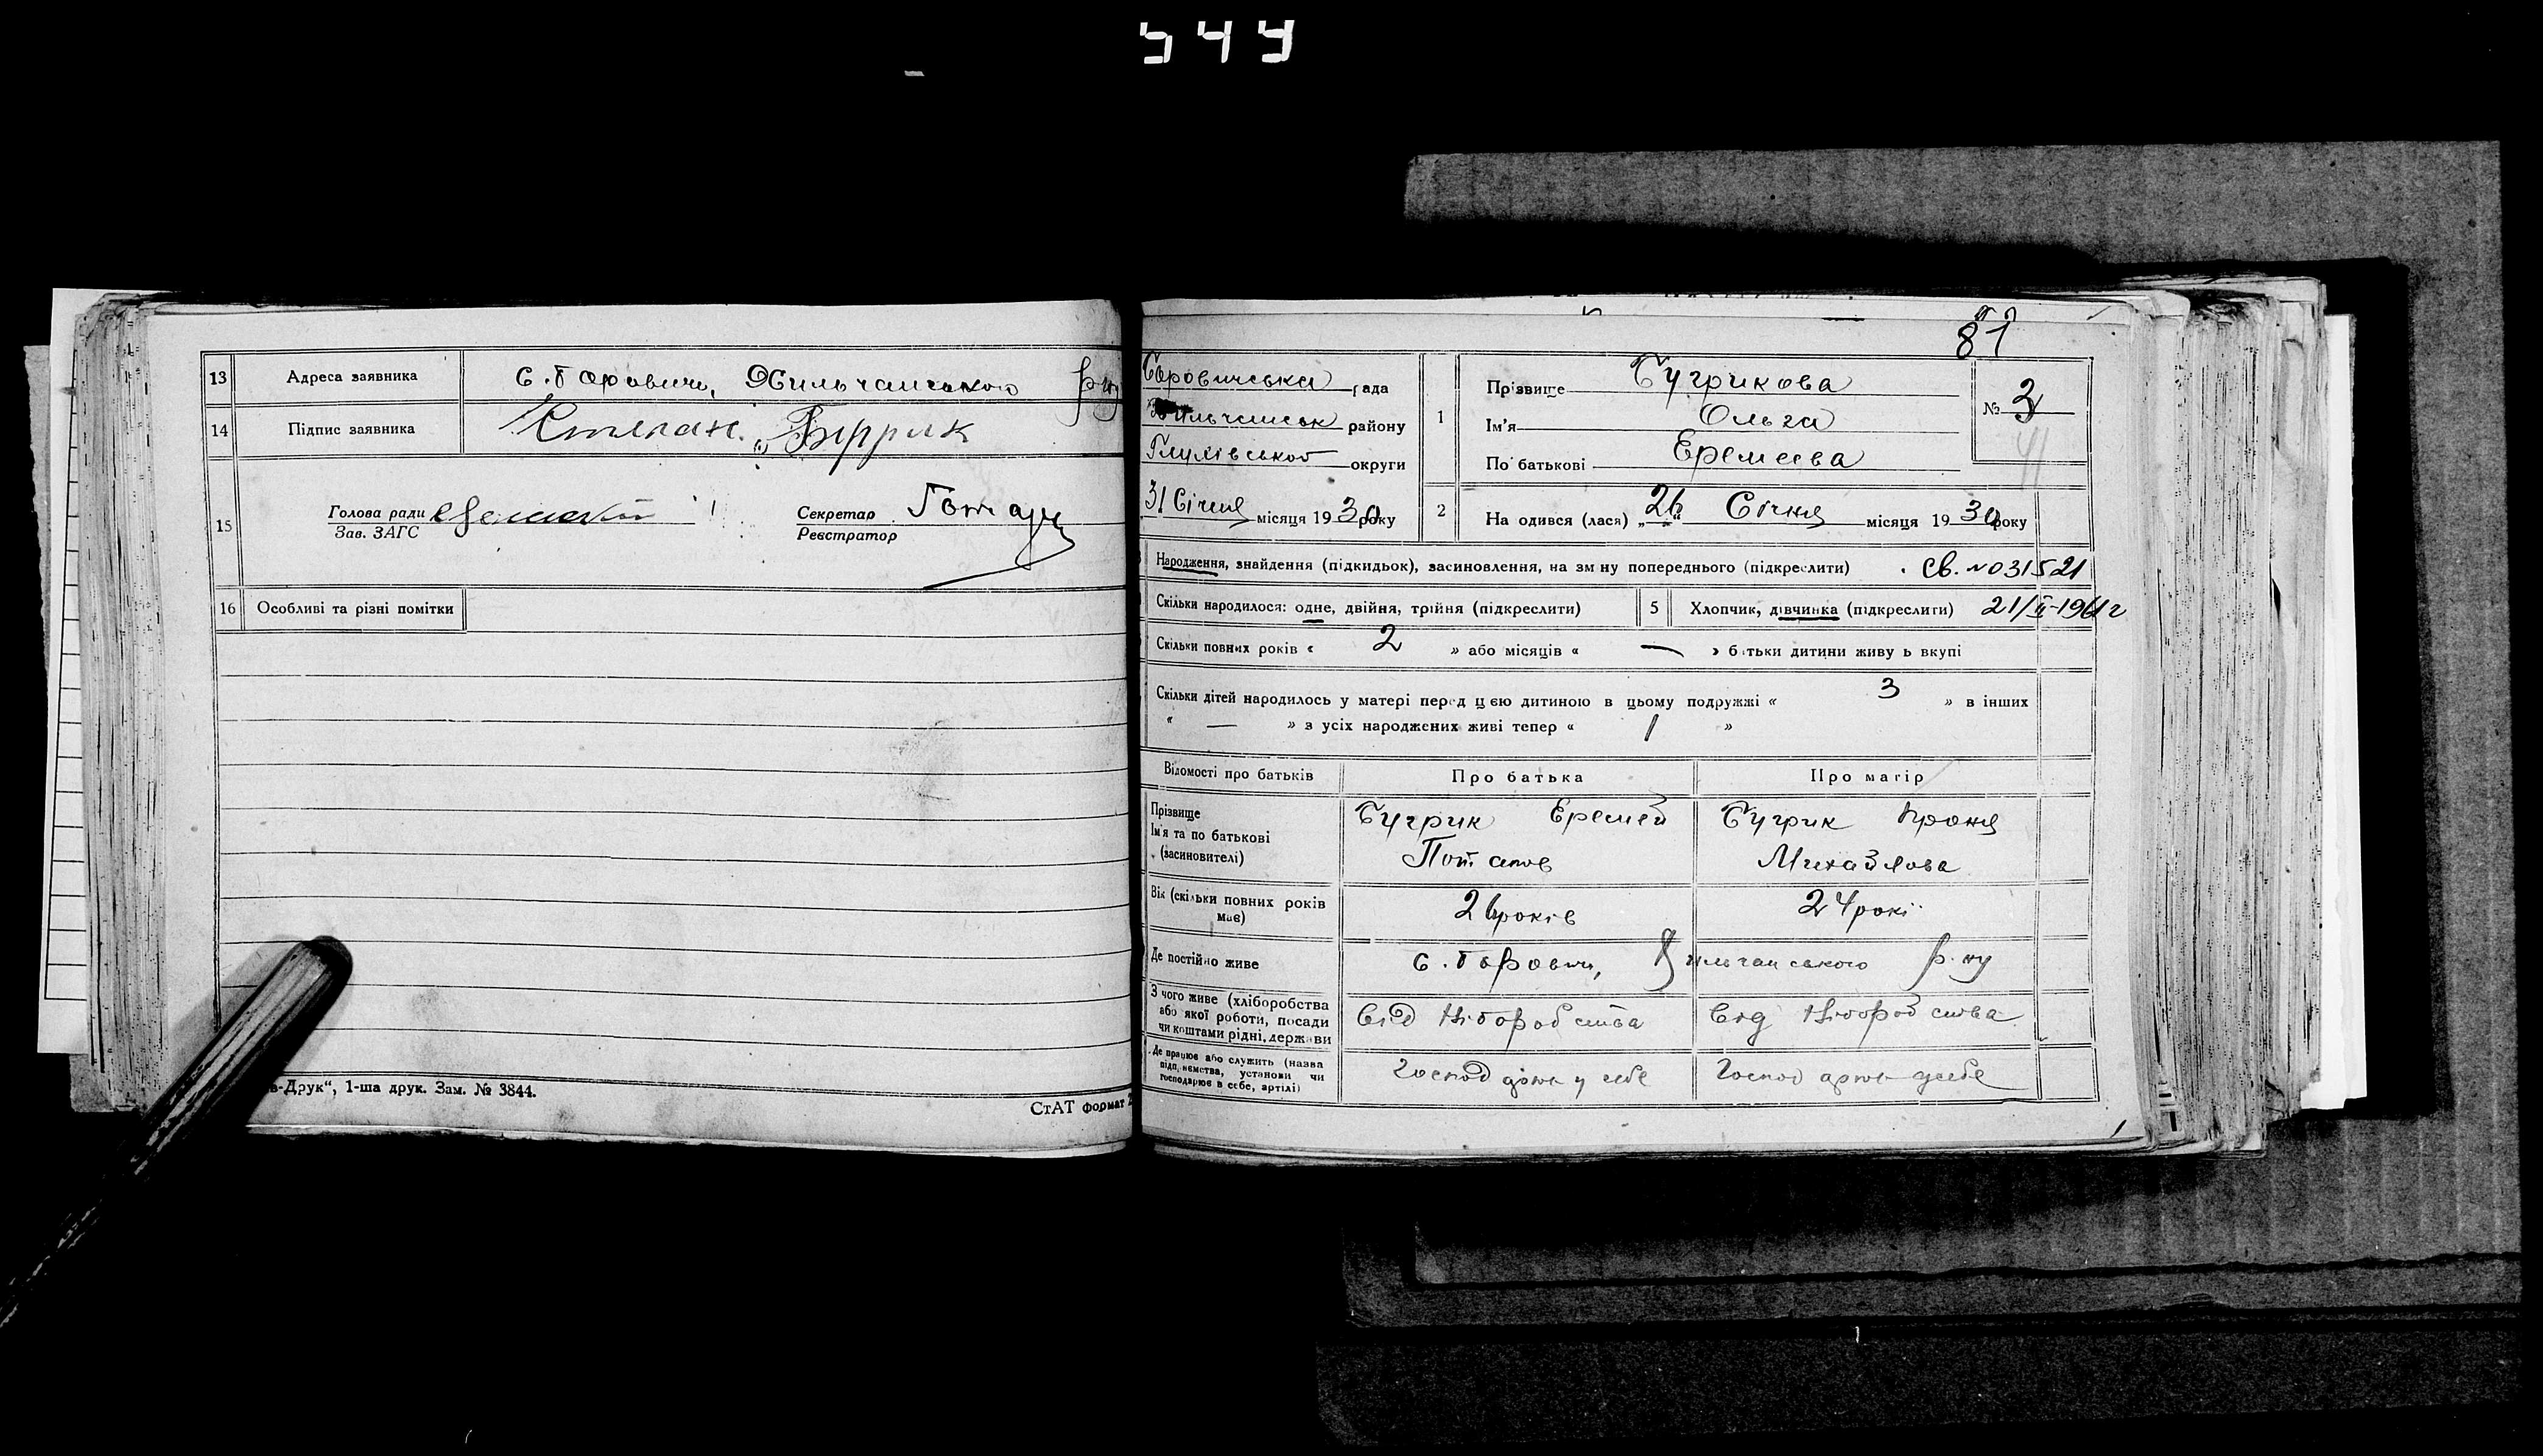 544
13 Адреса заявника с. Боровичи, Хильчанського р-ну
14 Підпис заявника Степан Бугрик
15 Голова ради Секретар
Зав. ЗАГС Реєстратор
16 Особливі та різні помітки
в-Друк“, 1-ша друк. Зам. № 3844.
СтАТ формат
81
Боровичська рада
району
Глухівської округи
31 Січня місяця 1930 року
1 Прізвище Бугрикова
Ім'я Ольга
По батькові Еремеева
№ 3
41
2 На одився (лася) „26“ Січня місяця 1930 року
Народження, знайдення (підкидьок), засиновлення, на зм ну попереднього (підкреслити) Св. № 031521
Скільки народилося: одне, двійня, трійня (підкреслити) 5 Хлопчик, дівчинка (підкреслити) 21/II-1961г
Скільки повних років « 2 » або місяців « — » батьки дитини живу ь вкупі
Скільки дітей народилось у матері перед цією дитиною в цьому подружжі « 3 » в інших
« — » з усіх народжених живі тепер « 1 »
Відомості про батьків Про батька Про матір
Прізвище
Ім'я та по батькові
(засиновителі)
Бугрик Еремей
Потапов
Бугрик
Михайлова
Вік (скільки повних років
має)
26 років 24 рокі
Де постійно живе с. Боровичи, р-ну
З чого живе (хліборобства
або якої роботи, посади
чи коштами рідні, держави
Від хліборобства Від хліборобства
Де працює або служить (назва
підприємства, установи чи
господарює в себе, артілі)
у себе у себе